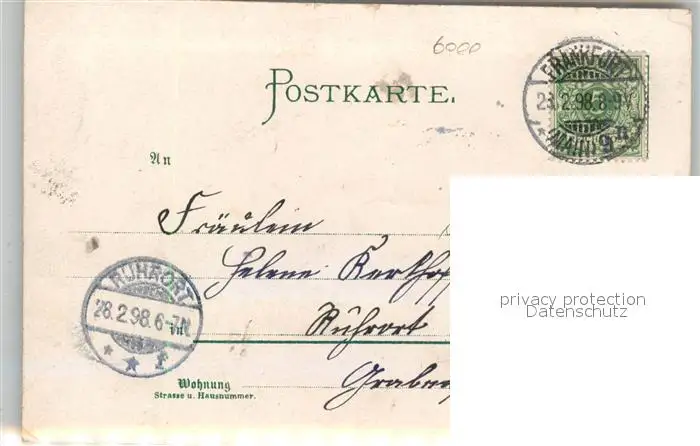 6000
POSTKARTE.
FRANKFURT
28.2.98.8-9V.
* (MAIN) 9 *
An
Fräulein
Helene
Ruhrort
in
RUHRORT
28.2.98.6-7N
* * 1
Wohnung
Strasse u. Hausnummer.
privacy protection
Datenschutz